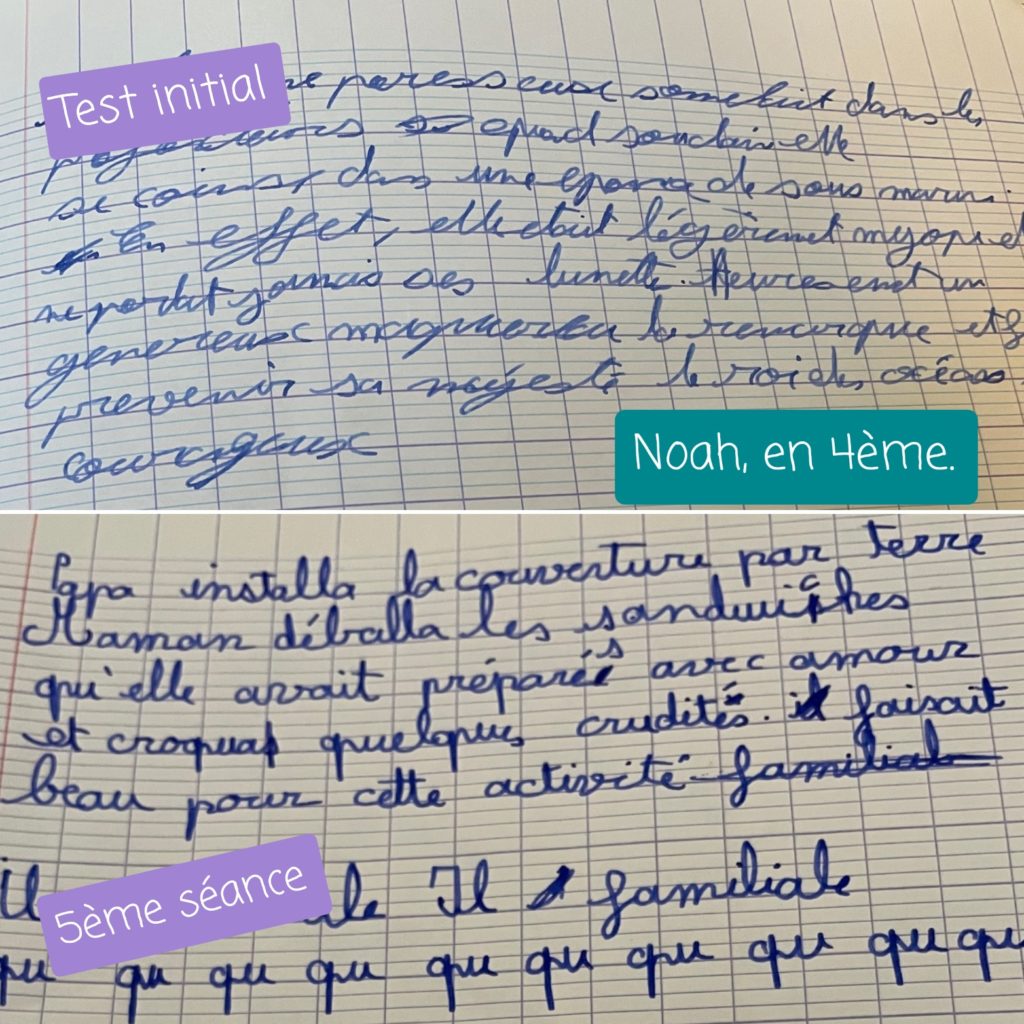 Test initial
paresseuse somelait dans les
quad soudain elle
se coinsa dans une epave de sous marin.
En effet, elle etait légèremet myope et
ne portait jamais ses lunette. Heureusenet un
genereux maquereau la remorque et
prevenir sa majesté le roi des océans.
courageux
Noah, en 4ème.
Papa installa la couverture par terre
Maman déballa les sandwiches
qu'elle avait préparés avec amour
et croqua quelques crudités. il faisait
beau pour cette activité familial
5ème séance
Il familiale
qu qu qu qu qu qu qu qu qu